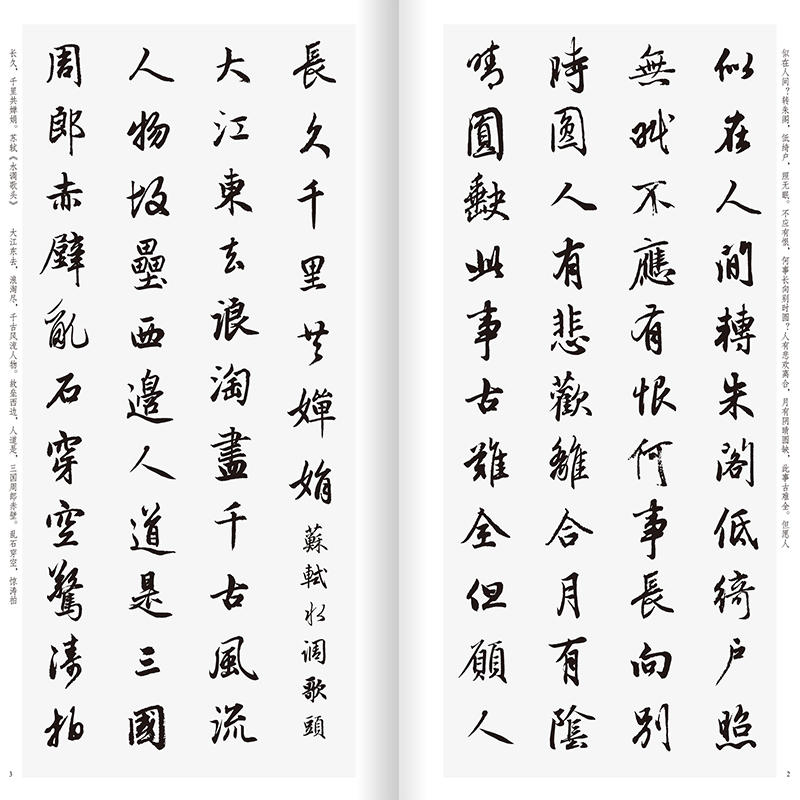 似在人间？转朱阁，低绮户，照无眠。不应有恨，何事长向别时圆？人有悲欢离合，月有阴晴圆缺，此事古难全。但愿人
似在人間轉朱閣低綺户照
無眠不應有恨何事長向别
時圓人有悲歡離合月有陰
晴圓缺此事古難全但願人
2
長久千里共嬋娟 蘇軾水調歌頭
大江東去浪淘盡千古風流
人物故壘西邊人道是三國
周郎赤壁亂石穿空驚濤拍
长久，千里共婵娟。苏轼《水调歌头》 大江东去，浪淘尽，千古风流人物。故垒西边，人道是，三国周郎赤壁。乱石穿空，惊涛拍
3